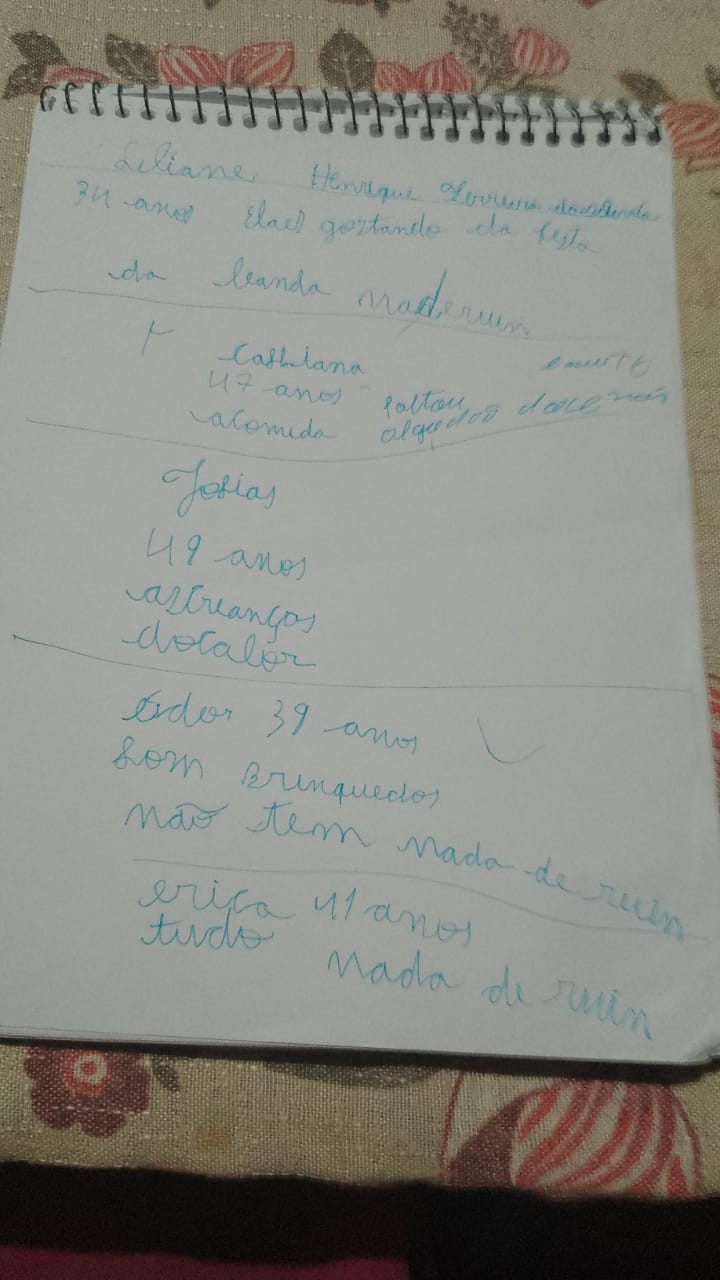 Liliane Henrique Ferreira
34 anos Elael gostando da festa
da leanda nada ruin
Cassiana
47 anos faltou
acomida algudos doce mais
Josias
49 anos
ascreanços
docalor
éder 39 anos
som Brinquedos
não tem nada de ruin
erica 41 anos
tudo nada de ruin